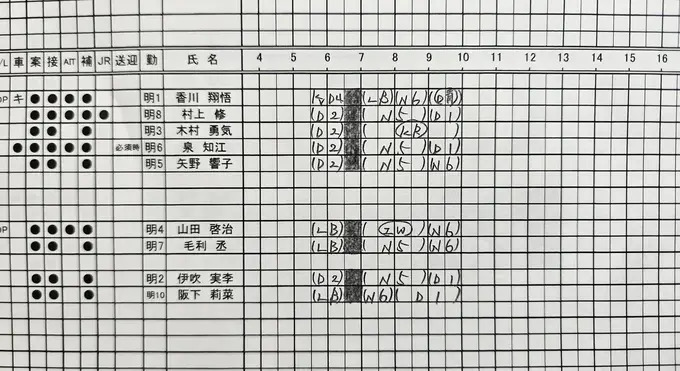 /L 車 案 接 AIT 補 JR 送迎 勤 氏名 4 5 6 7 8 9 10 11 12 13 14 15 16
OP キ ● ● ● ● 明1 香川 翔悟 D4 (LB) (N6)
● ● ● ● ● 明8 村上 修 (D2) (N5) (D1)
● ● ● 明3 木村 勇気 (D2) (KB)
● ● ● ● ● 必須時 明6 泉 知江 (D2) (N5) (D1)
● ● ● 明5 矢野 響子 (D2) (N5) (N6)
OP ● ● ● ● 明4 山田 啓治 (LB) (IW) (N6)
● ● ● 明7 毛利 丞 (LB) (N5) (N6)
● ● ● 明2 伊吹 実李 (D2) (N5) (D1)
● ● ● 明10 阪下 莉菜 (LB) (N6) (D1)